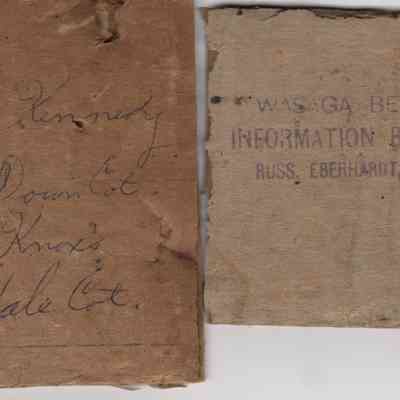 Kennedy
Down Cot.
Knox's
dale Cot.
WASAGA BE
INFORMATION B
RUSS. EBERHARDT,